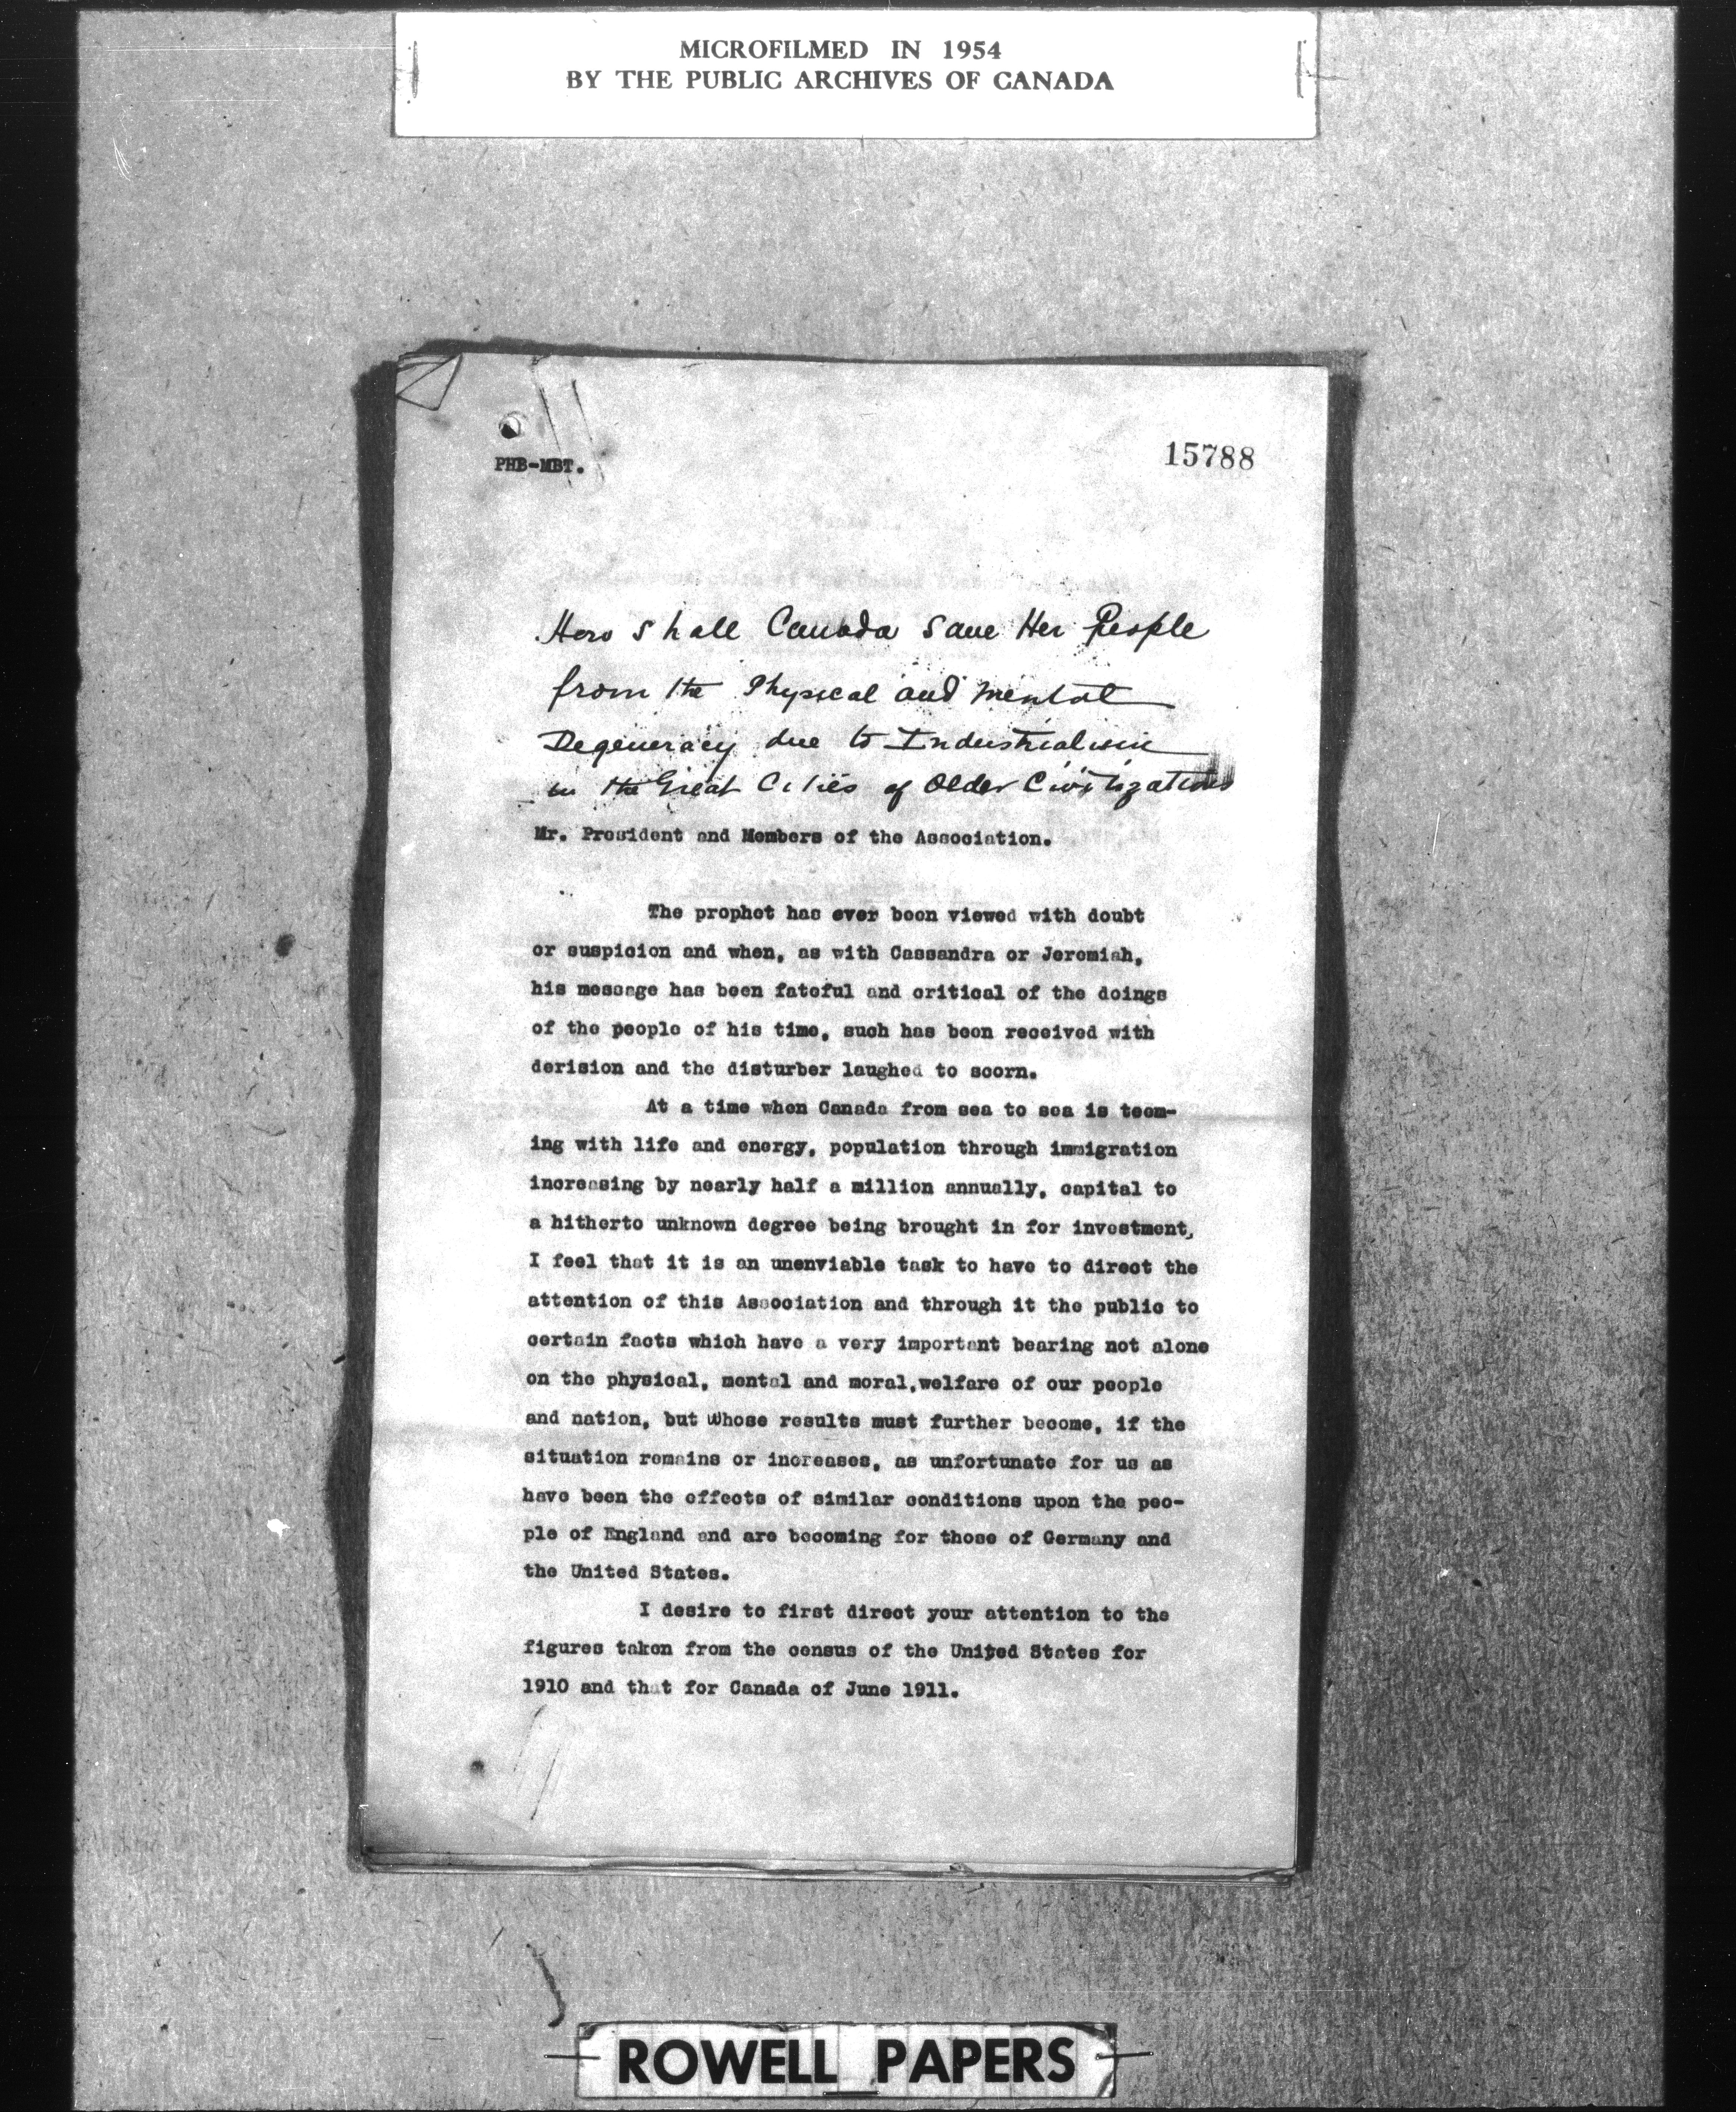 MICROFILMED IN 1954
BY THE PUBLIC ARCHIVES OF CANADA
15788
PHB-MBT.
How shall Canada Save Her People
from the Physical and Mental
Degeneracy due to Industrialism
in the Great Cities of Older Civilizations
Mr. President and Members of the Association.
The prophet has ever been viewed with doubt
or suspicion and when, as with Cassandra or Jeremiah,
his message has been fateful and critical of the doings
of the people of his time, such has been received with
derision and the disturber laughed to scorn.
At a time when Canada from sea to sea is teem-
ing with life and energy, population through immigration
increasing by nearly half a million annually, capital to
a hitherto unknown degree being brought in for investment,
I feel that it is an unenviable task to have to direct the
attention of this Association and through it the public to
certain facts which have a very important bearing not alone
on the physical, mental and moral,welfare of our people
and nation, but whose results must further become, if the
situation remains or increases, as unfortunate for us as
have been the effects of similar conditions upon the peo-
ple of England and are becoming for those of Germany and
the United States.
I desire to first direct your attention to the
figures taken from the census of the United States for
1910 and that for Canada of June 1911.
ROWELL PAPERS